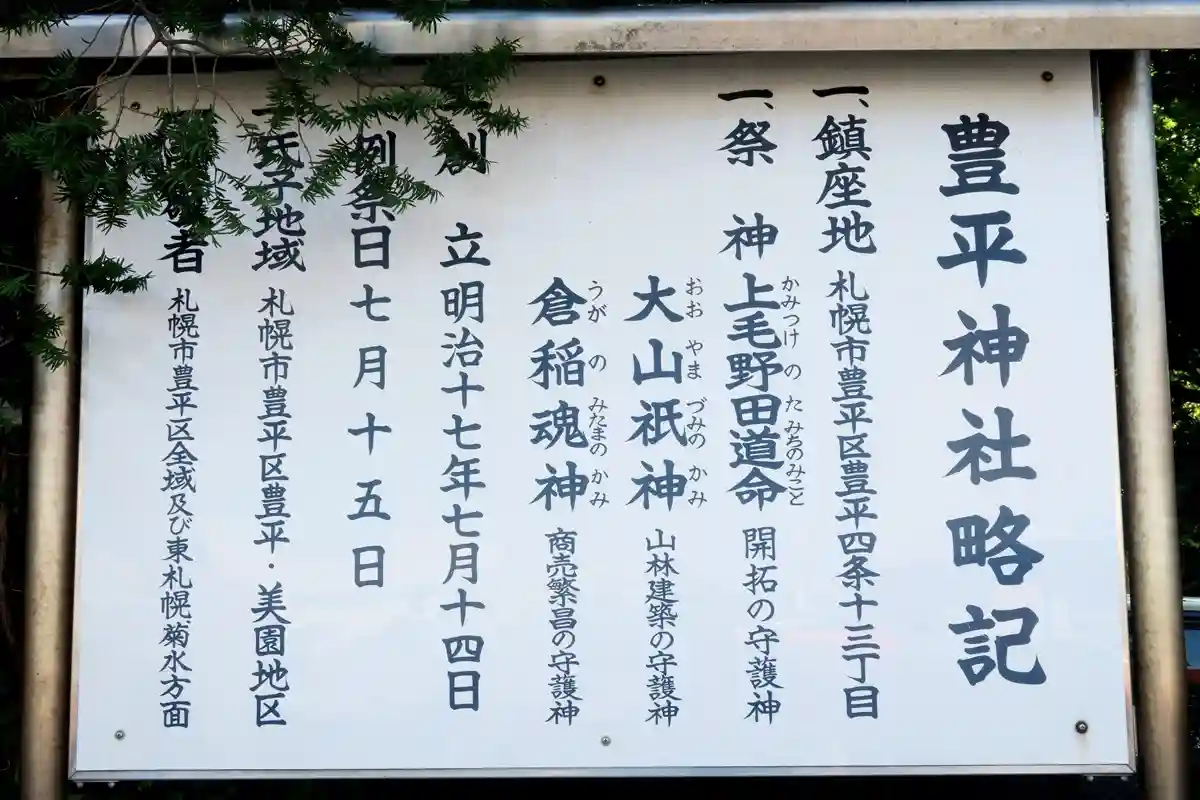 豊平神社略記
一、鎮座地 札幌市豊平区豊平四条十三丁目
一、祭 神 上毛野田道命 開拓の守護神
かみつけ の た みちのみこと
大山祇神 山林建築の守護神
おお やま づみの かみ
倉稲魂神 商売繁昌の守護神
うが の みたまの かみ
創 立 明治十七年七月十四日
例祭日 七月十五日
氏子地域 札幌市豊平区豊平・美園地区
者 札幌市豊平区全域及び東札幌、菊水方面